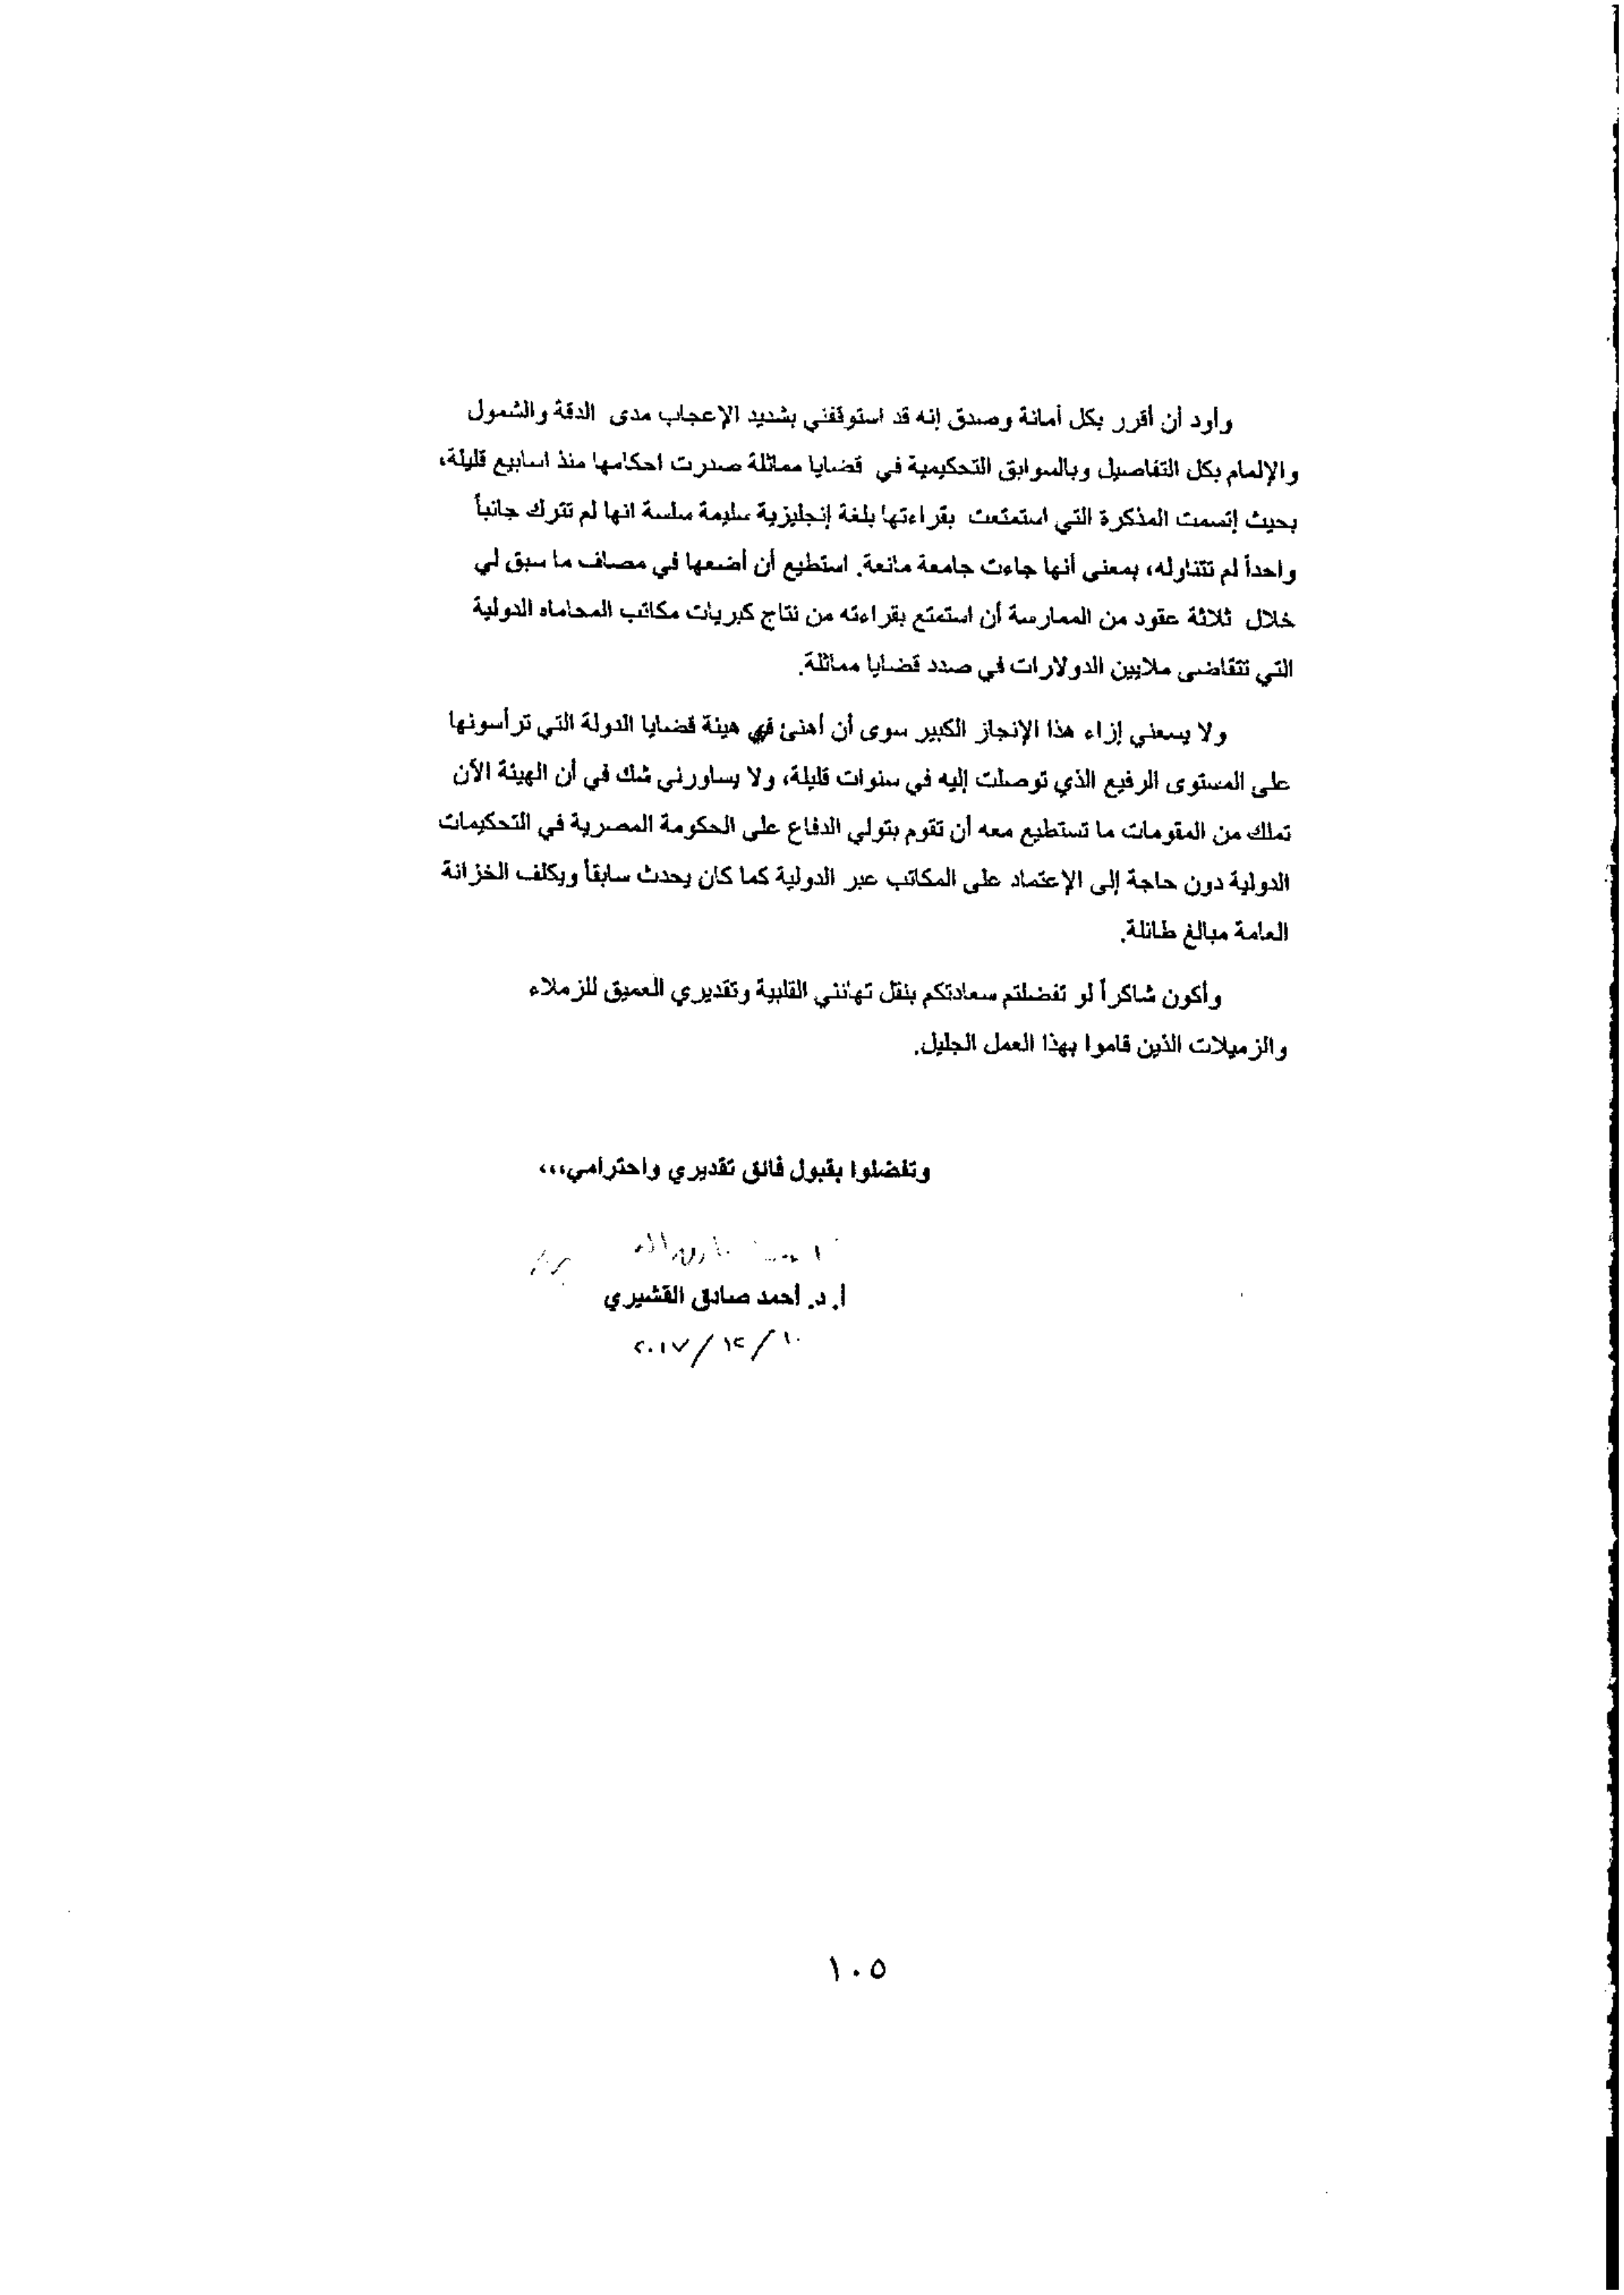 وأود أن أقرر بكل أمانة وصدق إنه قد استوقفني بشديد الإعجاب مدى الدقة والشمول
والإلمام بكل التفاصيل وبالسوابق التحكيمية في قضايا مماثلة صدرت احكامها منذ اسابيع قليلة،
بحيث إتسمت المذكرة التي استمتعت بقراءتها بلغة إنجليزية سليمة سلسة انها لم تترك جانباً
واحداً لم تتناوله، بمعنى أنها جاءت جامعة مانعة. استطيع أن أضعها في مصاف ما سبق لي
خلال ثلاثة عقود من الممارسة أن استمتع بقراءته من نتاج كبريات مكاتب المحاماه الدولية
التي تتقاضى ملايين الدولارات في صدد قضايا مماثلة.
ولا يسعني إزاء هذا الإنجاز الكبير سوى أن أهنئ هيئة قضايا الدولة التي ترأسونها
على المستوى الرفيع الذي توصلت إليه في سنوات قليلة، ولا يساورني شك في أن الهيئة الآن
تملك من المقومات ما تستطيع معه أن تقوم بتولي الدفاع على الحكومة المصرية في التحكيمات
الدولية دون حاجة إلى الإعتماد على المكاتب عبر الدولية كما كان يحدث سابقاً ويكلف الخزانة
العامة مبالغ طائلة.
وأكون شاكراً لو تفضلتم سعادتكم بنقل تهانئي القلبية وتقديري العميق للزملاء
والزميلات الذين قاموا بهذا العمل الجليل.
وتفضلوا بقبول فائق تقديري واحترامي،،،
أ. د. أحمد صادق القشيري
١٠/١٢/٢٠١٧
١٠٥